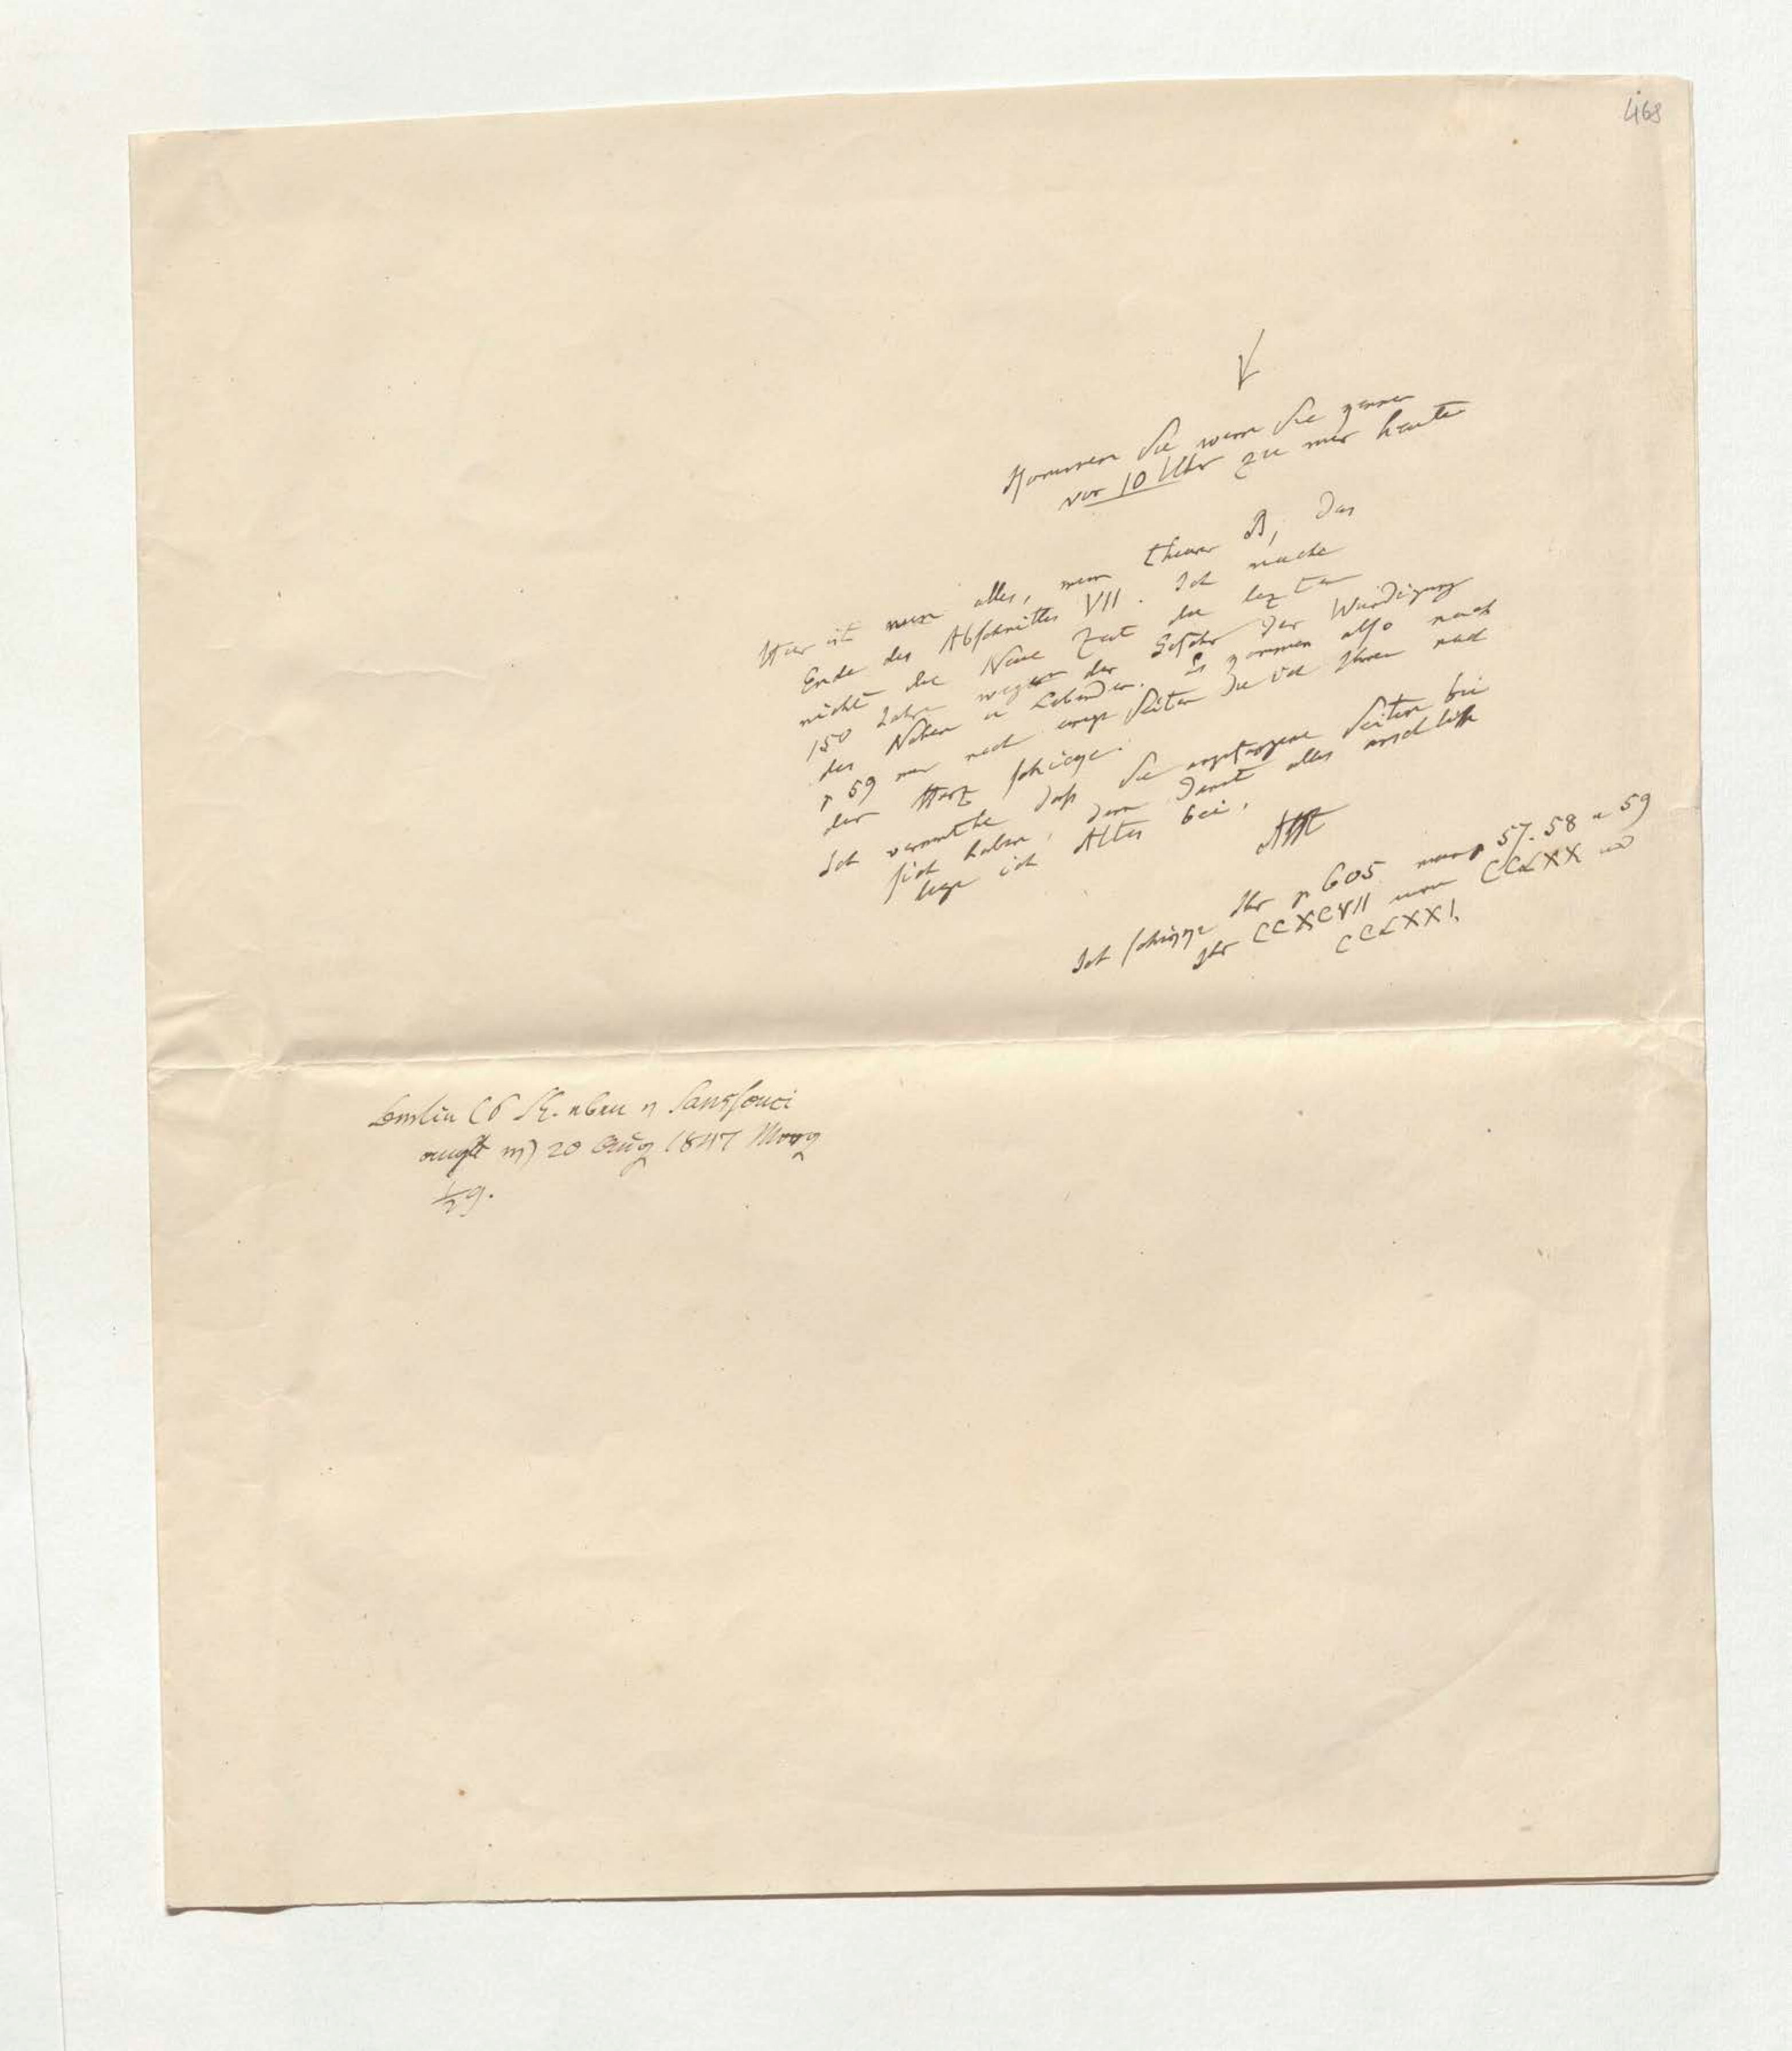 468
Kommen Sie wenn Sie können
vor 10 Uhr zu mir heute
Hier ist nun alles, mein theurer B, das
Ende des Abschnittes VII. Ich mache
nicht die Neue Zeit die lezten
150 Jahre wegen der Gefahr der Würdigung
des Nahen u Lebenden. Es kommen also nach
p 59 nur noch einige Seiten die ich Ihnen nach
der Harz schicke.
Ich vermuthe daß Sie angefangene Seiten bei
sich haben, denn damit alles anschließe
lege ich Altes bei.
AHt
Ich schikke Ihr p 605 mein p 57. 58 u 59
Ihr CCXCVII mein CCLXX und
CCLXXI.
Berlin
Sanssouci
20 Aug 1847 Morg
½9.